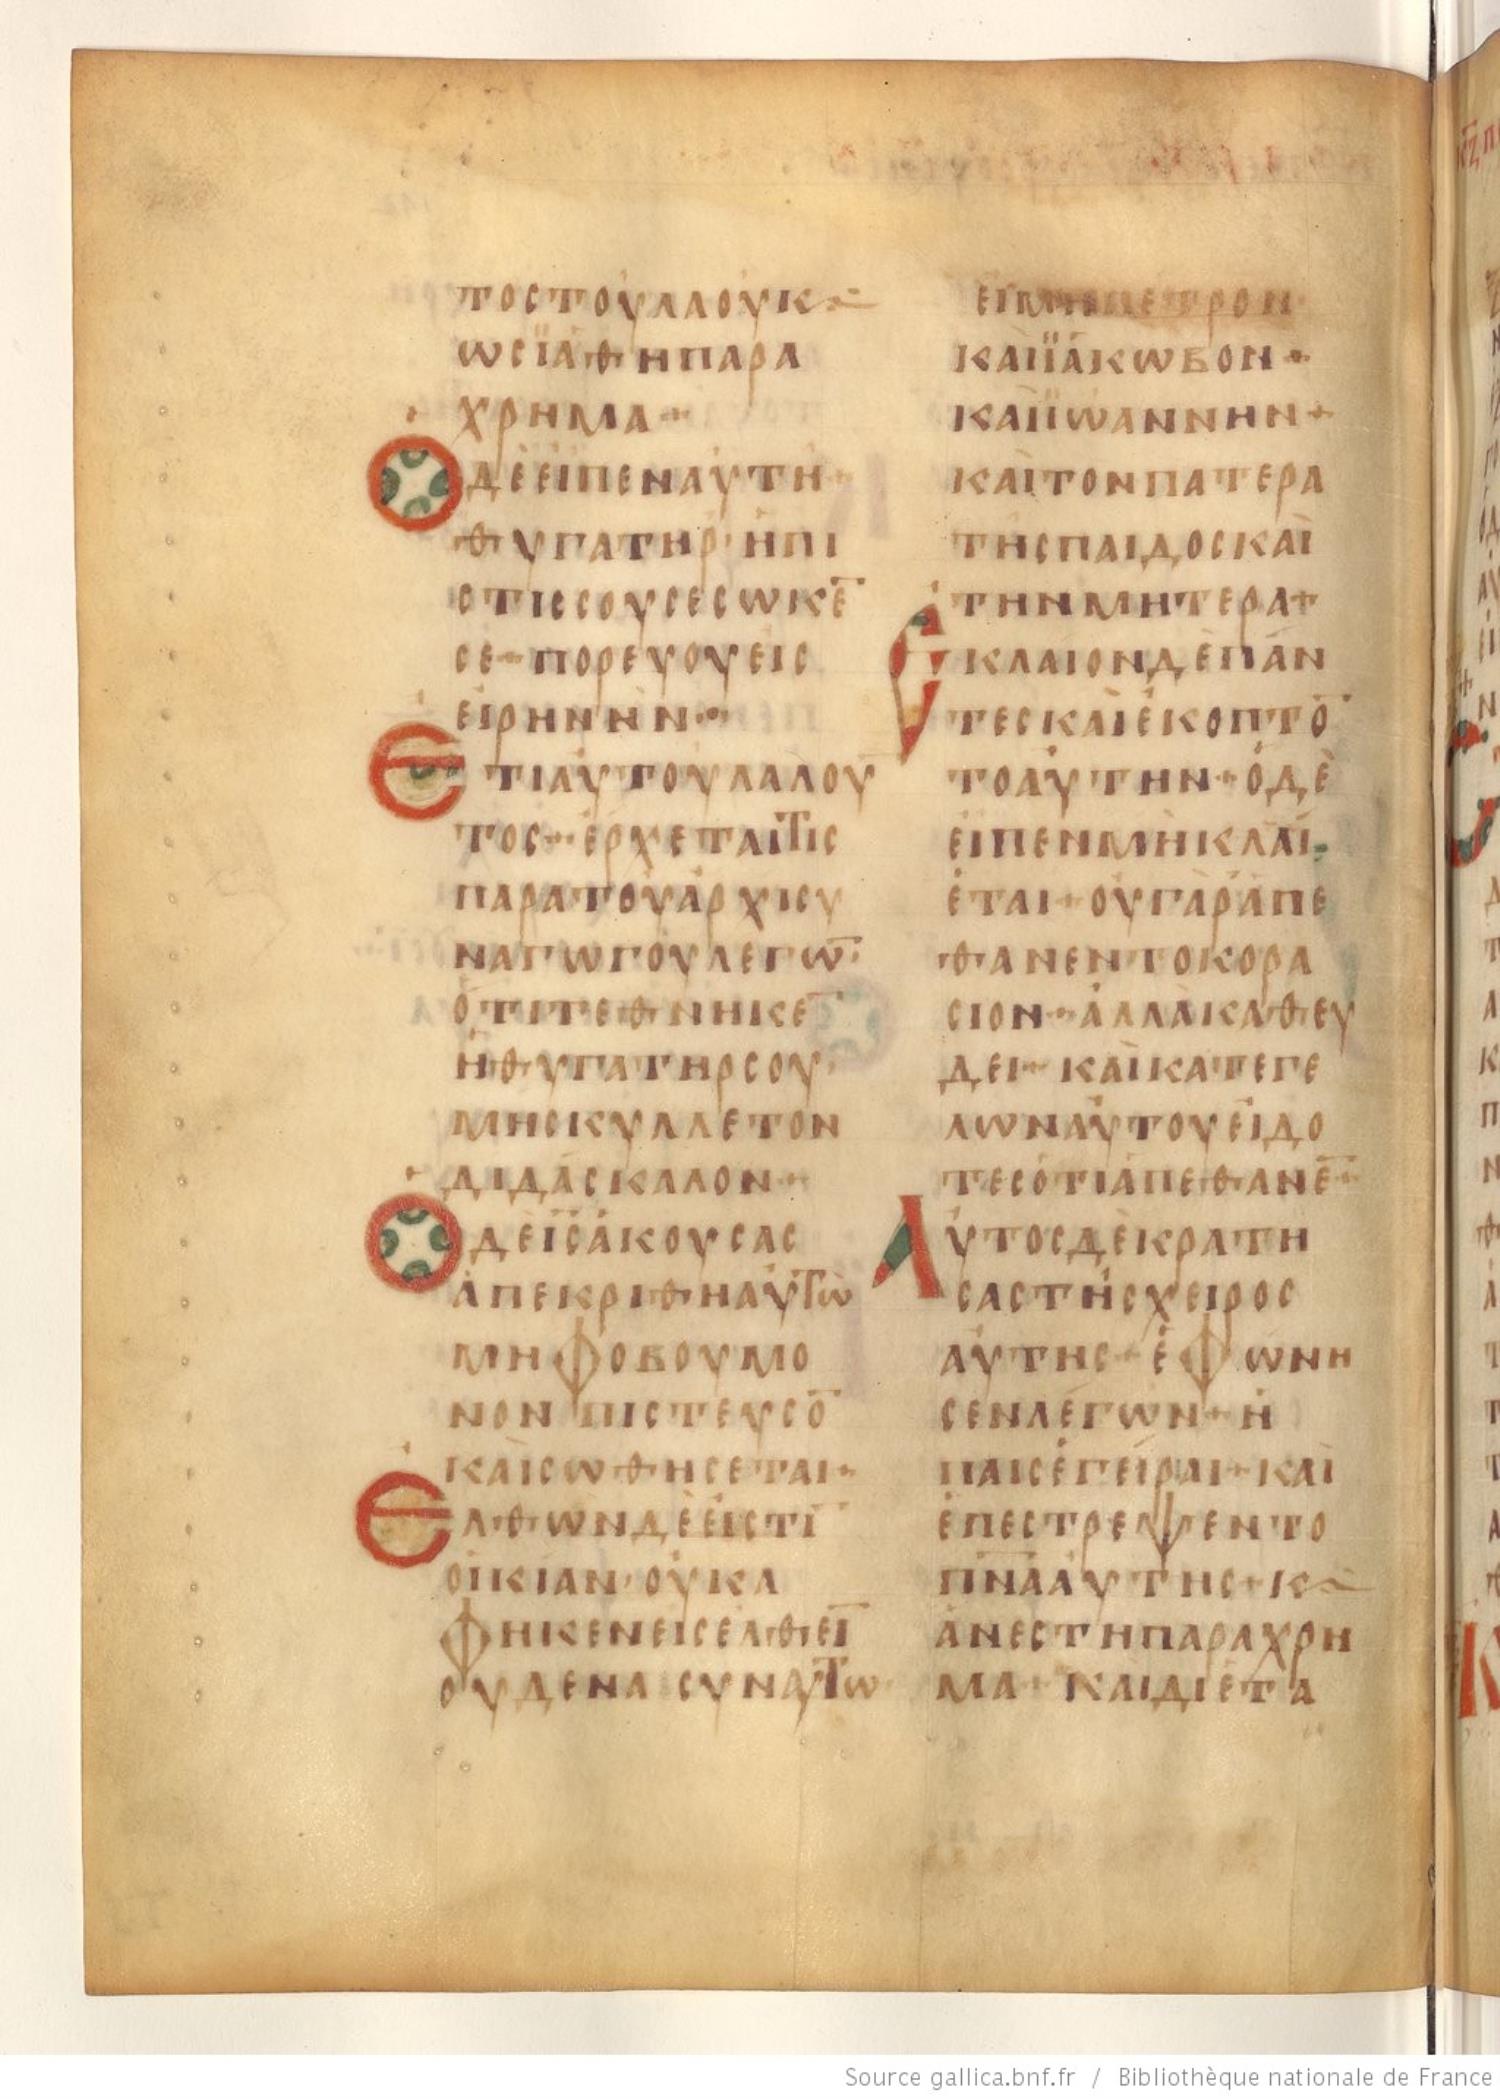 ΤΟΣΤΟΥΛΑΟΥΚ
ΩΣΪΑΘΗΠΑΡΑ
ΧΡΗΜΑ+
ΟΔΕΕΙΠΕΝΑΥΤΗ+
ΘΥΓΑΤΗΡ·ΗΠΙ
ΣΤΙΣΣΟΥΣΕΣΩΚΕ̅
ΣΕ+ΠΟΡΕΥΟΥΕΙΣ
ΕΙΡΗΝΗΝ+
ΕΤΙΑΥΤΟΥΛΑΛΟΥ̅
ΤΟΣ+ΕΡΧΕΤΑΙΤΙΣ
ΠΑΡΑΤΟΥΑΡΧΙΣΥ
ΝΑΓΩΓΟΥΛΕΓΩ̅·
ΟΤΙΤΕΘΝΗΚΕ̅
ΗΘΥΓΑΤΗΡΣΟΥ·
ΜΗΣΚΥΛΛΕΤΟΝ
ΔΙΔΑΣΚΑΛΟΝ+
ΟΔΕΙ̅Σ̅ΑΚΟΥΣΑΣ
ΑΠΕΚΡΙΘΗΑΥΤΩ
ΜΗΦΟΒΟΥΜΟ
ΝΟΝΠΙΣΤΕΥΣΟ̅
ΚΑΙΣΩΘΗΣΕΤΑΙ+
ΕΛΘΩΝΔΕΕΙΣΤΙ̅
ΟΙΚΙΑΝ·ΟΥΚΑ
ΦΗΚΕΝΕΙΣΕΛΘΕΙ̅
ΟΥΔΕΝΑΣΥΝΑΥΤΩ
ΕΙΜΗΠΕΤΡΟΝ·
ΚΑΙΪΑΚΩΒΟΝ+
ΚΑΙΪΩΑΝΝΗΝ+
ΚΑΙΤΟΝΠΑΤΕΡΑ
ΤΗΣΠΑΙΔΟΣΚΑΙ
ΤΗΝΜΗΤΕΡΑ+
ΕΚΛΑΙΟΝΔΕΠΑΝ
ΤΕΣΚΑΙΕΚΟΠΤΟ̅
ΤΟΑΥΤΗΝ+ΟΔΕ
ΕΙΠΕΝΜΗΚΛΑΙ
ΕΤΑΙ+ΟΥΓΑΡΑΠΕ
ΘΑΝΕΝΤΟΚΟΡΑ
ΣΙΟΝ+ΑΛΛΑΚΑΘΕΥ
ΔΕΙ+ΚΑΙΚΑΤΕΓΕ
ΛΩΝΑΥΤΟΥΕΙΔΟ
ΤΕΣΟΤΙΑΠΕΘΑΝΕ̅+
ΑΥΤΟΣΔΕΚΡΑΤΗ
ΣΑΣΤΗΣΧΕΙΡΟΣ
ΑΥΤΗΣ+ΕΦΩΝΗ
ΣΕΝΛΕΓΩΝ+Η
ΠΑΙΣΕΓΕΙΡΑΙ+ΚΑΙ
ΕΠΕΣΤΡΕΨΕΝΤΟ
Π̅Ν̅Α̅ΑΥΤΗΣ+Κ
ΑΝΕΣΤΗΠΑΡΑΧΡΗ
ΜΑ+ΚΑΙΔΙΕΤΑ
Source gallica.bnf.fr / Bibliothèque nationale de France